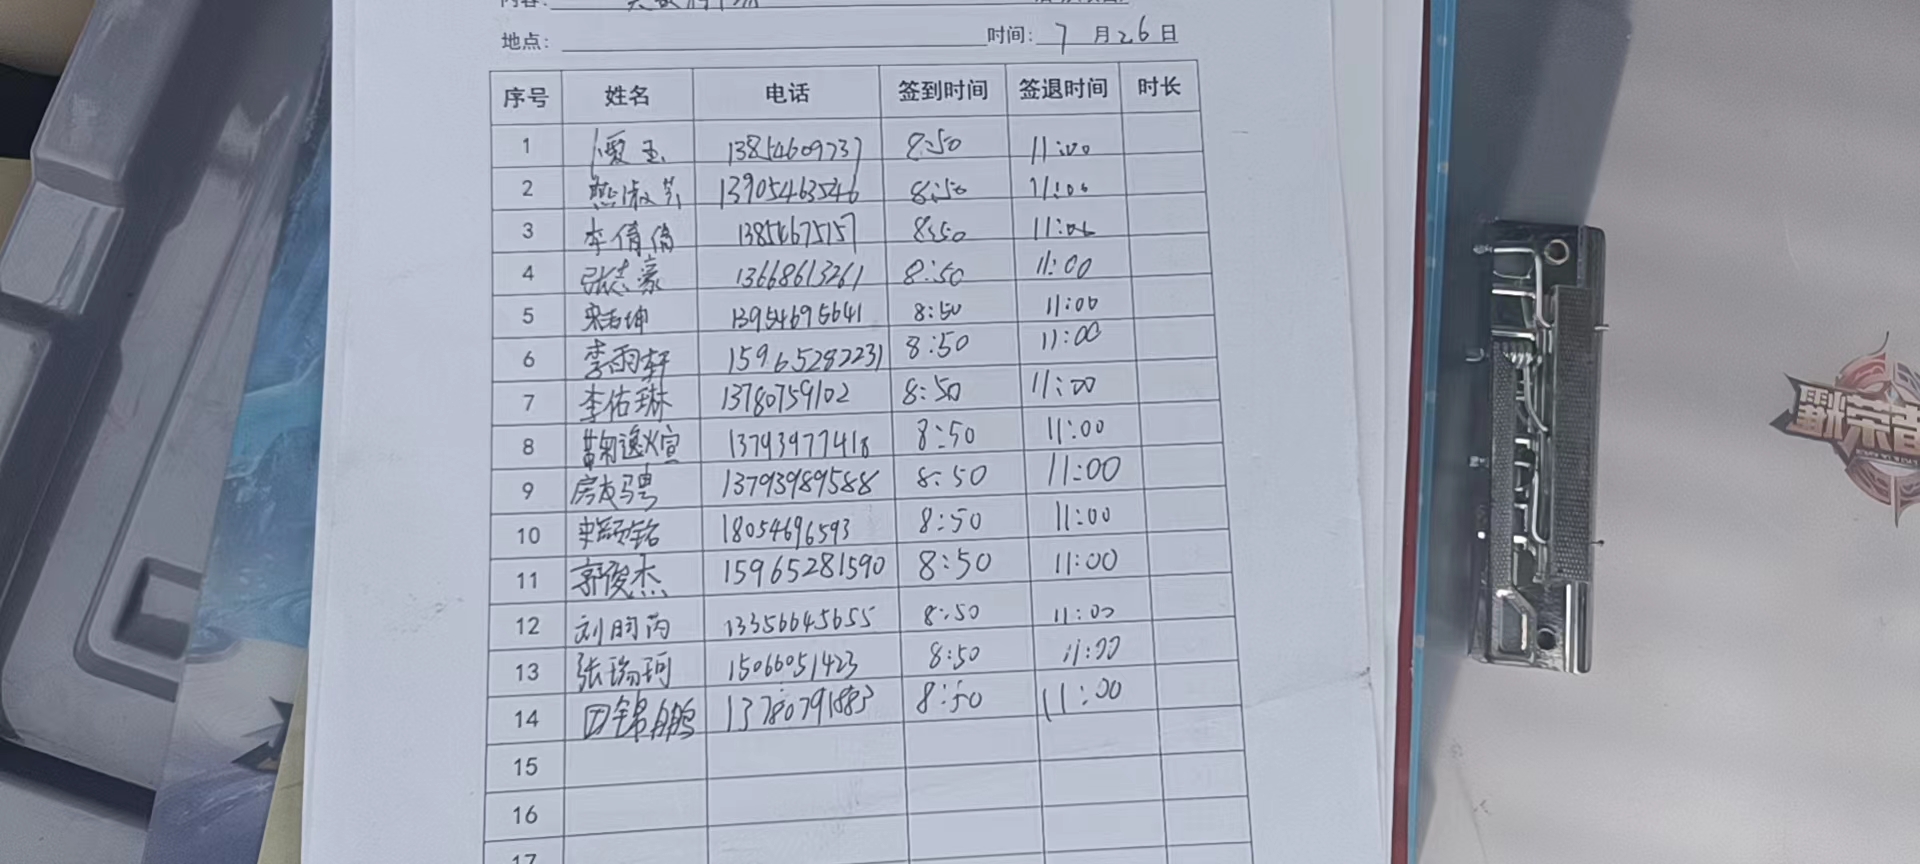 内容:
地点: 时间: 7 月 26 日
序号 姓名 电话 签到时间 签退时间 时长
1 玉 13854609737 8:50 11:00
2 13905463546 8:50 11:00
3 李倩倩 13854675157 8:50 11:00
4 张志豪 13668613261 8:50 11:00
5 13954695641 8:50 11:00
6 李雨轩 15965282231 8:50 11:00
7 李佑琳 13780759102 8:50 11:00
8 13793977418 8:50 11:00
9 房友骋 13793989588 8:50 11:00
10 18054696593 8:50 11:00
11 郭俊杰 15965281590 8:50 11:00
12 刘玥芮 13356645655 8:50 11:00
13 张瑞珂 15066051423 8:50 11:00
14 田锦鹏 13780791883 8:50 11:00
15
16
17